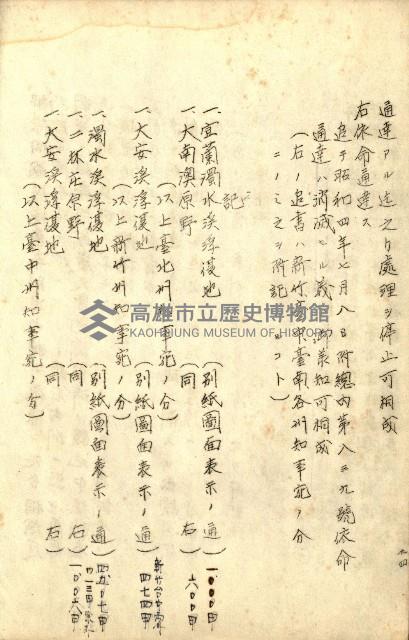 通達アル迄之力處理ヲ停止可相成
右依命通達ス
追テ昭和四年七月八日附總內第八三九號依命
通達ハ消滅セル義御承知可相成
(右ノ追書ハ新竹臺中臺南各州知事宛ノ分
ニノミ之ヲ附記スルコト)
記
一、宜蘭濁水溪浮復地(別紙圖面表示ノ通) 一、〇〇〇甲
一、大南澳原野(同 右) 六〇〇甲
(以上臺北州知事宛ノ分)
一、大安溪浮復地(別紙圖面表示ノ通) 新竹台中ニ跨ル 四七四甲
(以上新竹州知事宛ノ分)
一、濁水溪浮復地(別紙圖面表示ノ通) 四五〇七甲
一、二林庄原野(同 右)
一、大安溪浮復地(同 右) 一〇〇六甲
(以上臺中州知事宛ノ分)
高雄市立歷史博物館
KAOHSIUNG MUSEUM OF HISTORY